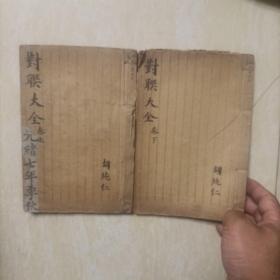 對聯大全卷上
光緒七年季秋
胡純仁
對聯大全卷下
胡純仁